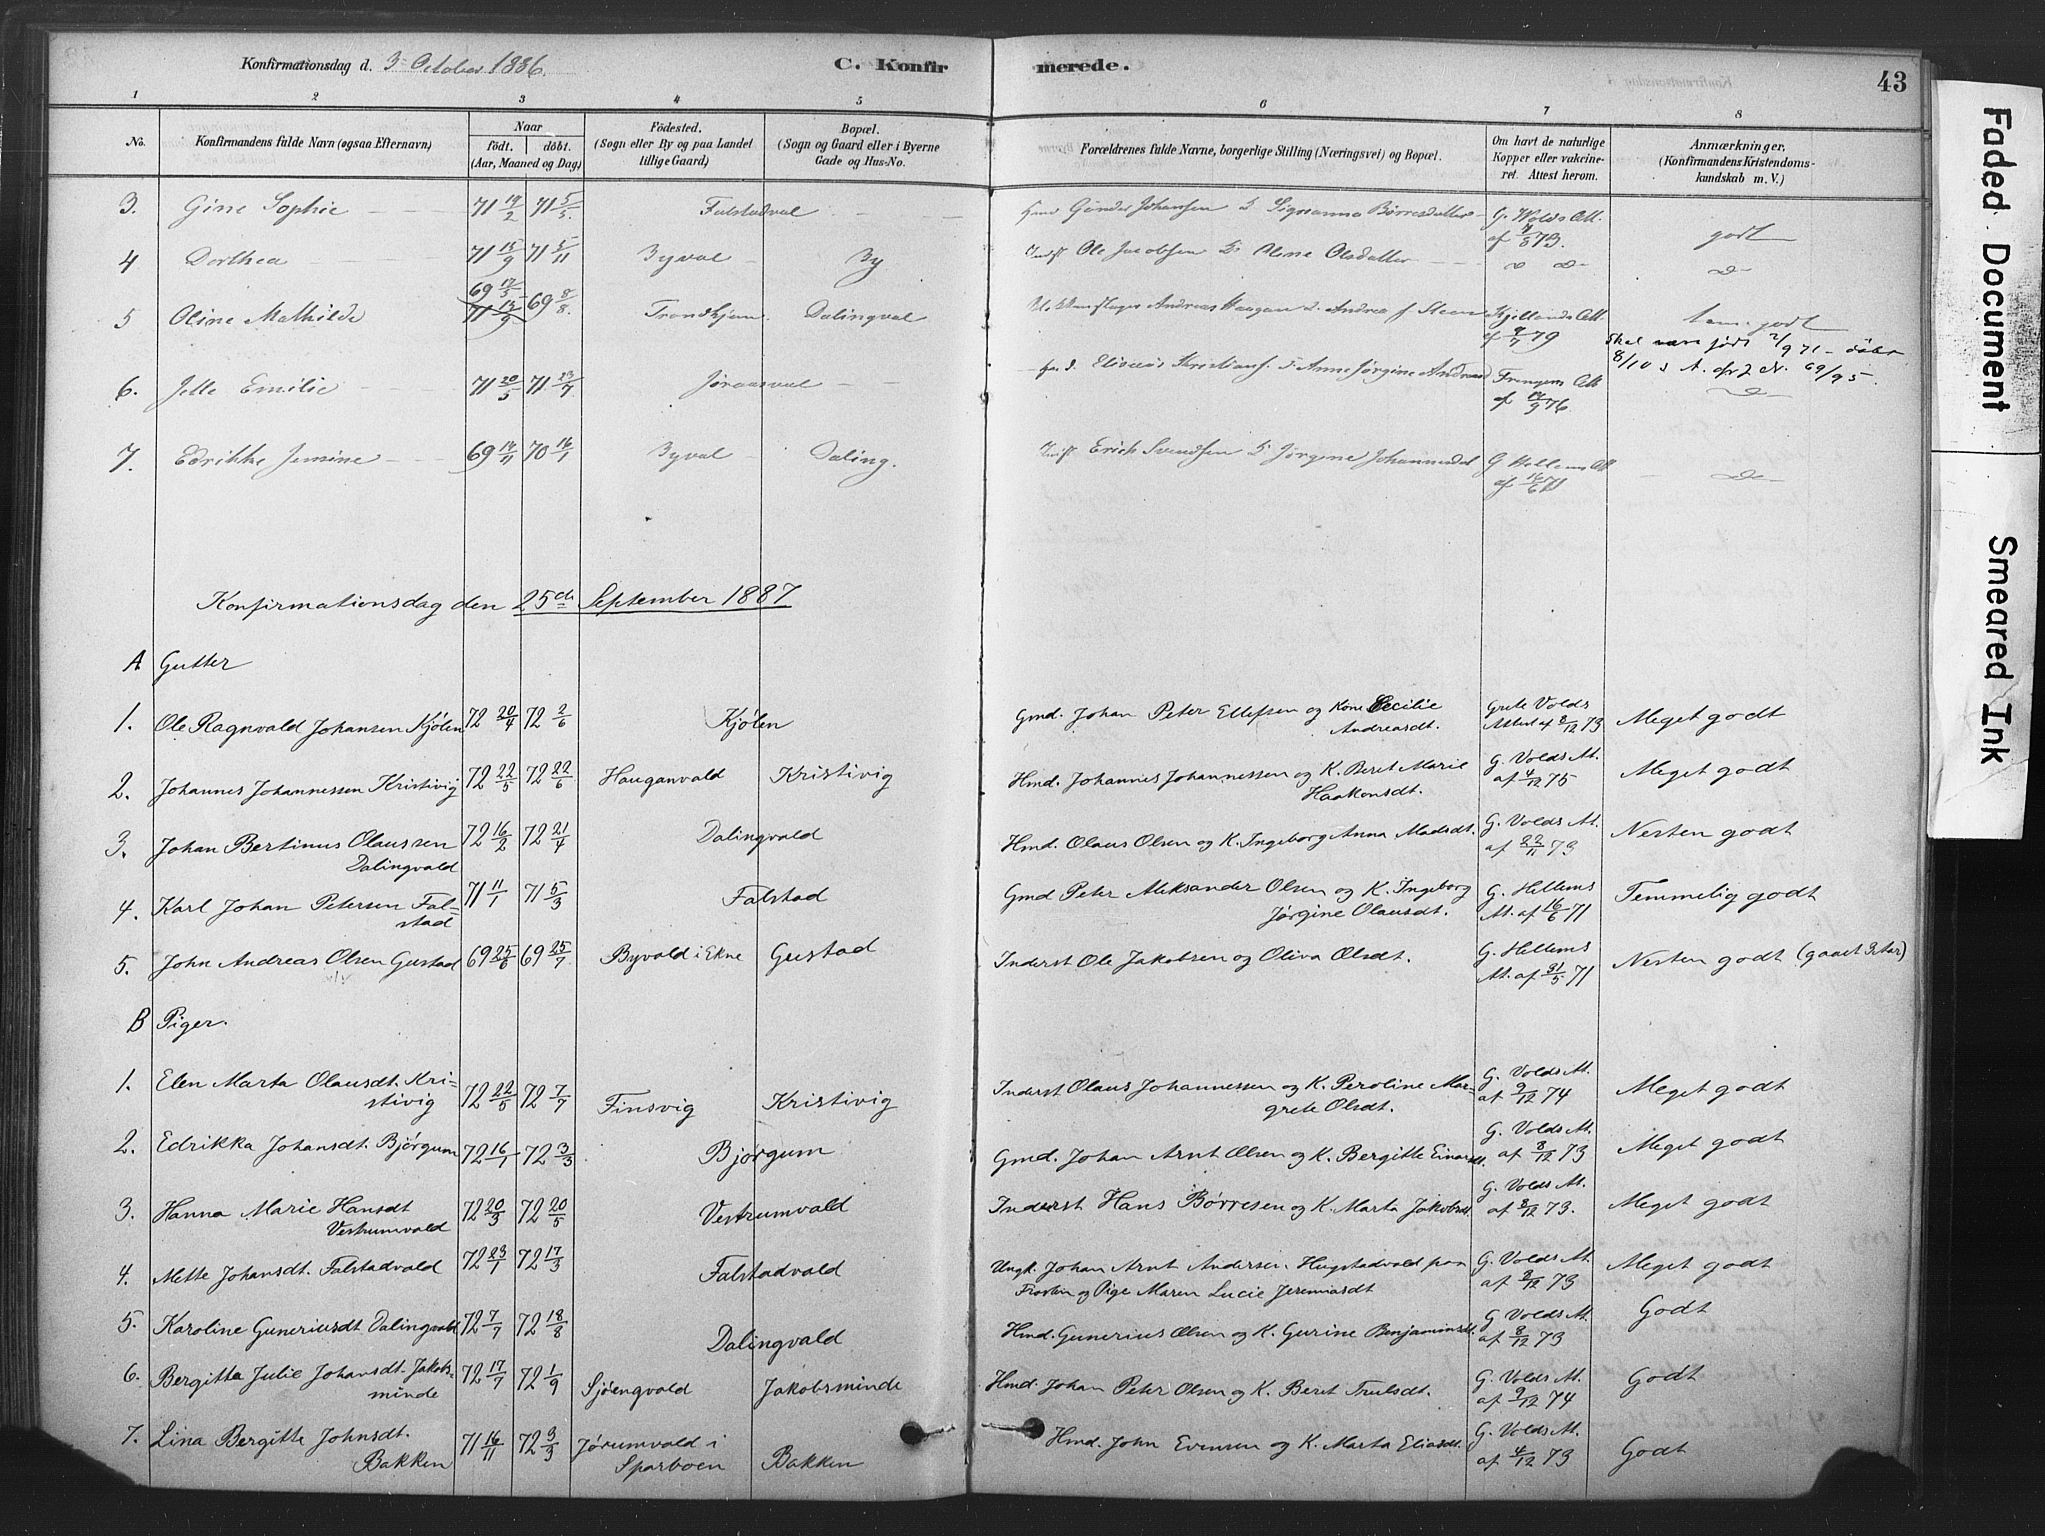 Konfirmationsdag d. 3 October 1886. C. Konfirmerede. 43
1 2 3 4 5 6 7 8
No. Konfirmandens fulde Navn (ogsaa Efternavn) Naar født. døbt. (Aar, Maaned og Dag) Fødested. (Sogn eller By og paa Landet tillige Gaard) Bopæl. (Sogn og Gaard eller i Byerne Gade og Hus-No. Forældrenes fulde Navne, borgerlige Stilling (Næringsvei) og Bopæl. Om havt de naturlige Kopper eller vakcineret. Attest herom. Anmærkninger. (Konfirmandens Kristendomskundskab m. V.)
3. Gine Sophie 71 19/2 71 5/5 Falstadval Gunder Johansen Børresdatter G. Volds Att. af 4/8 73. godt
4 Dorthea 71 15/9 71 5/11 Byval By Inderst Ole Jacobsen Olsdatter do do do
5 Oline Mathilde 69 12/5 71 13/9 69 8/8 Trondhjem Dalingval Andreas Haagan Andrea Steen Kjellands Att af 9/7 79 tem. godt
Skal være født 2/9 71 - døbt 8/10 69/95.
6. Jelle Emilie 71 20/5 71 23/7 Jøraasval Kristians. Anne Jørgine Att af 12/9 76 do
7. Edrikke Jensine 69 14/11 70 16/1 Byval Daling. Inderst Erich Svendsen Jørgine Johannesd. G Hellems Att af 16/6 71 do
Konfirmationsdag den 25de September 1887
A Gutter
1. Ole Ragnvald Johansen Kjølen 72 20/4 72 2/6 Kjølen Gmd. Johan Peter Ellefsen og Kone Cecilie Andreasdt. Grete Volds Attest af 8/12 73 Meget godt
2. Johannes Johannessen Kristivig 72 22/5 72 22/6 Hauganvald Kristivig Hmd. Johannes Johannessen og K. Beret Marie Haakonsdt. G. Volds At. af 4/12 75 Meget godt
3. Johan Bertinus Olaussen Dalingvald 72 16/2 72 21/4 Dalingvald Hmd. Olaus Olsen og K. Ingeborg Anna Madsdt. G. Volds At. af 22/11 73 Nesten godt
4. Karl Johan Petersen Falstad 71 11/1 71 5/3 Falstad Gmd Peter Aleksander Olsen og K. Ingeborg Jørgine Olausdt. G. Hellems At. af 16/6 71 Temmelig godt
5. John Andreas Olsen Gustad 69 25/6 69 25/7 Byvald i Ekne Gustad Inderst Ole Jakobsen og Oliva Olsdt. G. Hellems At. af 31/5 71 Nesten godt (gaaet 2 Aar)
B Piger.
1. Elen Marta Olausdt. Kristivig 72 22/5 72 7/7 Finsvig Kristivig Inderst Olaus Johannessen og K. Peroline Margrete Olsdt. G. Volds At. af 9/12 74 Meget godt
2. Edrikka Johansdt. Bjørgum 72 16/1 72 3/3 Bjørgum Gmd. Johan Arnt Olsen og K. Bergitte Einarsdt. G. Volds At. af 8/12 73 Meget godt
3. Hanna Marie Hansdt Vestrumvald 72 20/3 72 20/5 Vestrumvald Inderst Hans Børresen og K. Marta Jakobsdt. G. Volds At. af 8/12 73. Meget godt
4. Mette Johansdt. Falstadvald 72 23/1 72 17/3 Falstadvald Ungk. Johan Arnt Andersen Hugstadvald paa Frosten og Pige Maren Lucie Jeremiasdt G. Volds At. af 8/12 73 Meget godt
5. Karoline Guneriusdt Dalingvald 72 7/7 72 18/8 Dalingvald Hmd. Gunerius Olsen og K. Gurine Benjaminsdt. G Volds At. af 8/12 73 Godt
6. Bergitta Julie Johansdt. Jakobsminde 72 17/7 72 1/9 Sjøengvald Jakobsminde Hmd. Johan Peter Olsen og K. Beret Trulsdt. G. Volds At. af 9/12 74 Godt
7. Lina Bergitte Johnsdt. Bakken 71 16/11 72 3/3 Jørumvald i Sparboen Bakken Hmd. John Evensen og K. Marta Eliasdt. G. Volds At. af 4/12 73 Godt
Faded Document
Smeared Ink